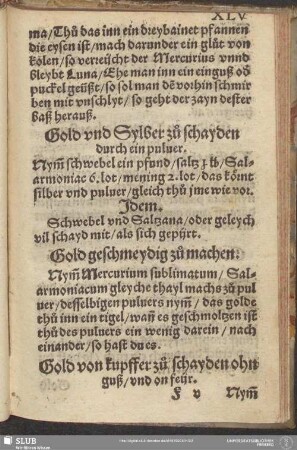 XLV
ma/Thů das inn ein dreybainet pfannen
die eysen ist/mach darunder ein glůt von
kolen/so verreücht der Mercurius vnnd
bleybt Luna/Ehe man inn ein einguß oď
puckel geüßt/so sol man dē vorhin schmir
ben mit vnschlyt/so geht der zayn dester
baß herauß.
Gold vnd Sylber zů schayden
durch ein puluer.
Nym̃ schwebel ein pfund/saltz ʒ lb/Sal-
armoniac 6. lot/mening 2. lot/das körnt
silber vnd puluer/gleich thů jme wie vor.
Idem.
Schwebel vnd Salzana/oder geleych
vil schayd mit/als sich gepürt.
Gold geschmeydig zů machen.
Nym̃ Mercurium sublimatum/Sal-
armoniacum gleyche thayl machs zů pul
uer/desselbigen puluers nym̃/das golde
thů inn ein tigel/wañ es geschmoltzen ist
thů des puluers ein wenig darein/nach
einander/so hast du es.
Gold von kupffer zů schayden ohn
guß/vnd on feür.
F v Nym̃
SLUB
Wir führen Wissen.